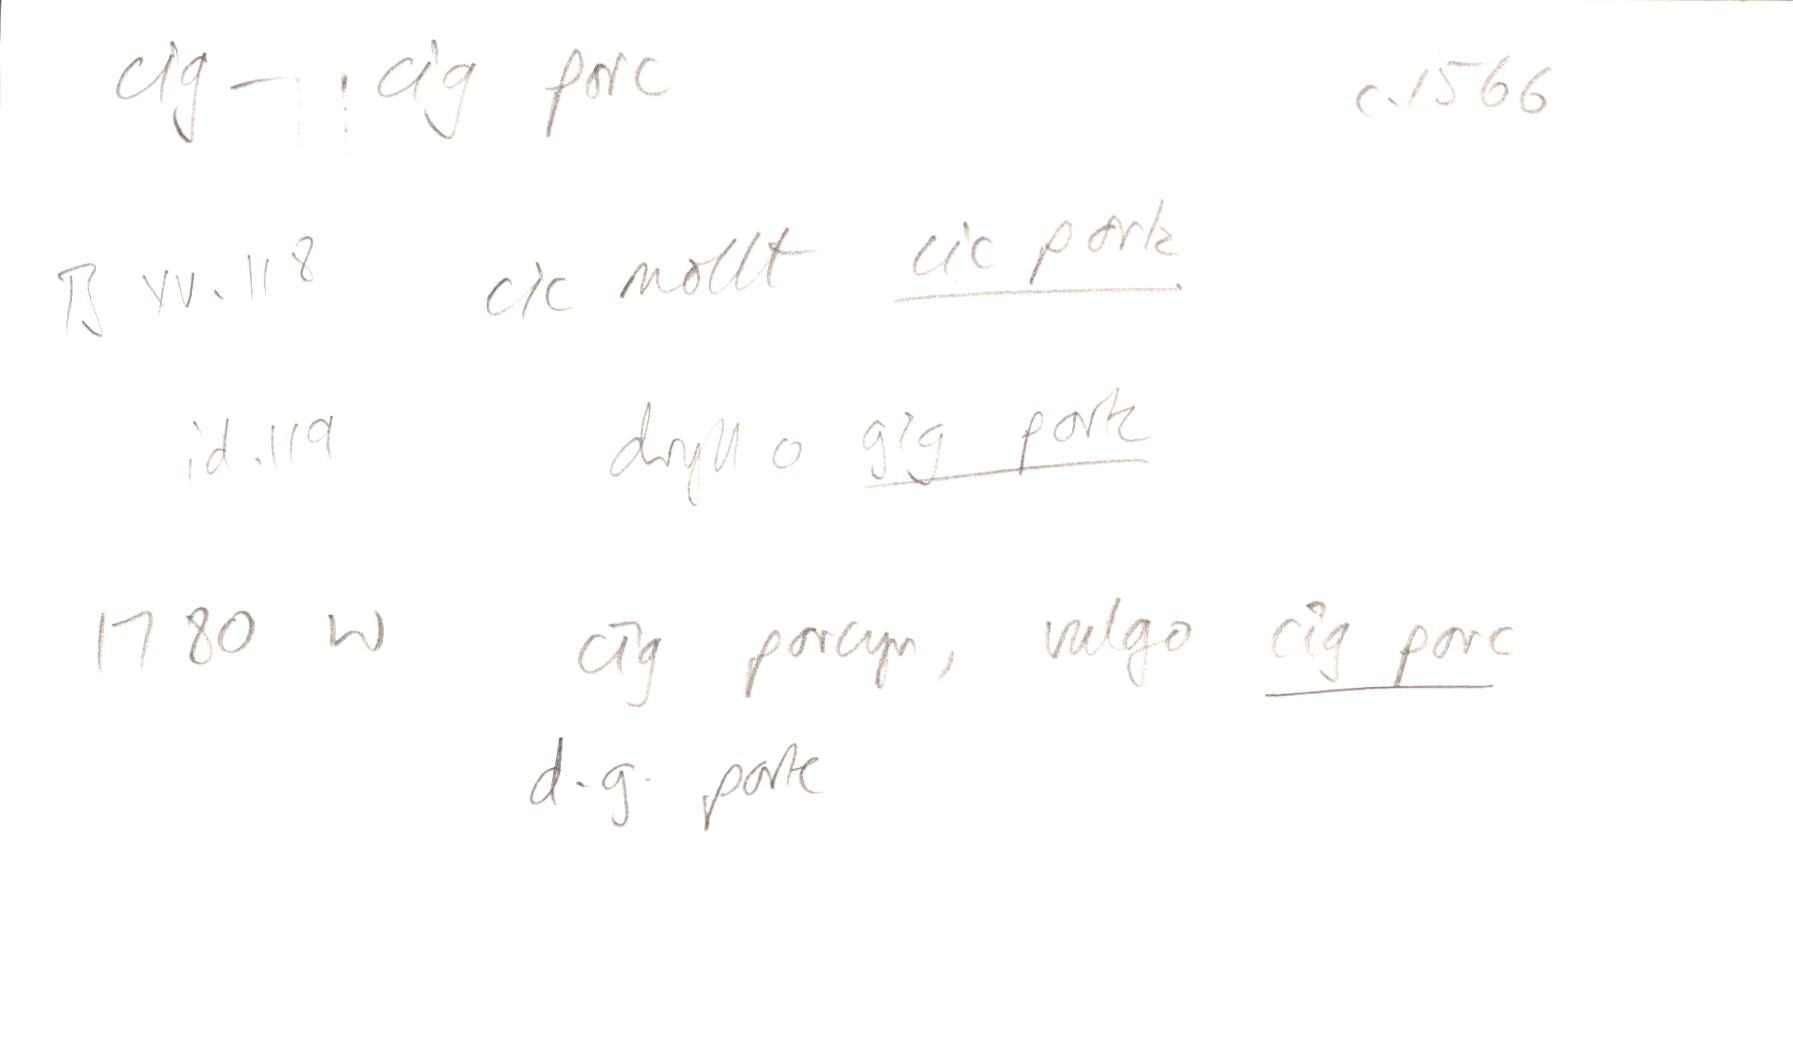 cig — : cig porc c.1566
B xv. 118 cic mollt cic pork
id. 119 dryll o gig pork
1780 W cîg porcyn, vulgo cîg porc
d.g. pork